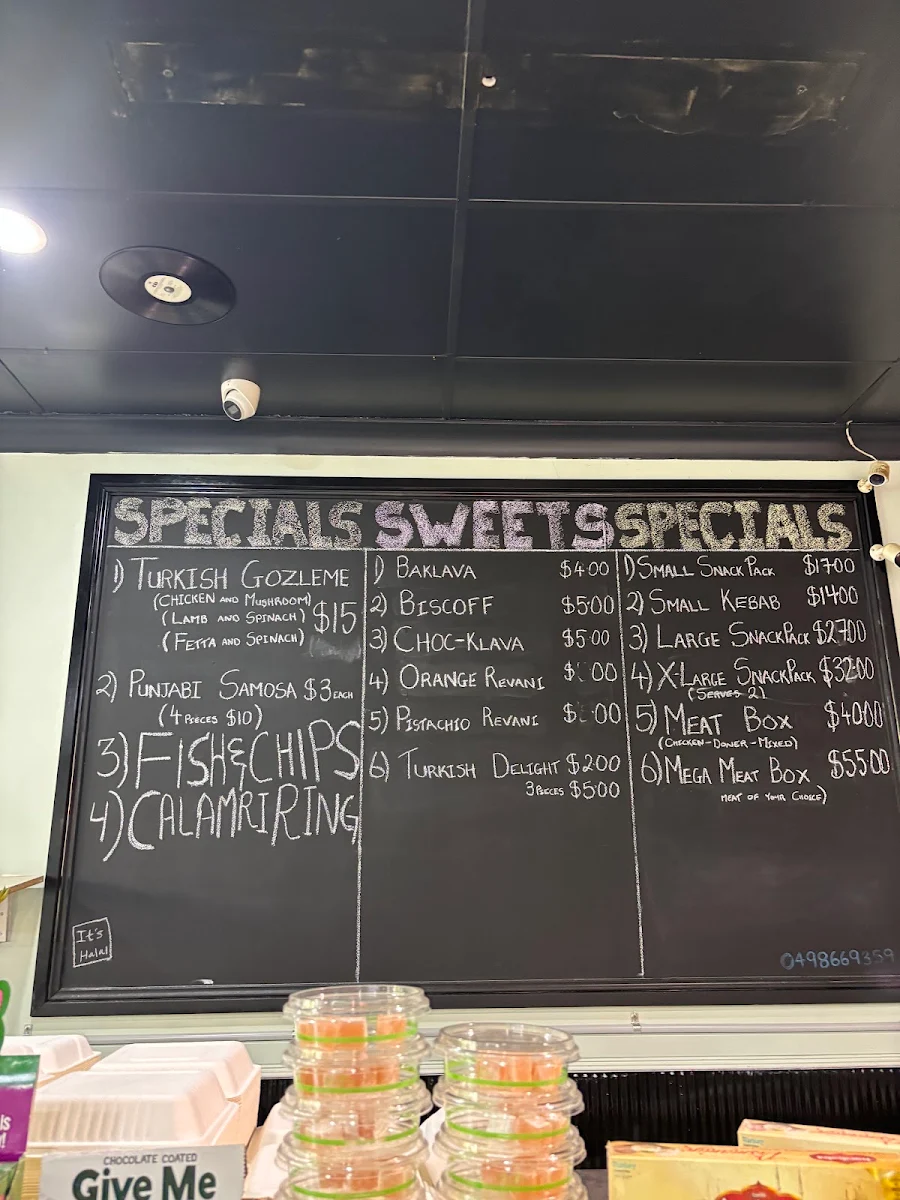 SPECIALS
1) TURKISH GOZLEME
(CHICKEN AND MUSHROOM)
(LAMB AND SPINACH) $15
(FETTA AND SPINACH)
2) PUNJABI SAMOSA $3 EACH
(4 PIECES $10)
3) FISH & CHIPS
4) CALAMRI RING
It's
Halal
SWEETS
1) BAKLAVA $4.00
2) BISCOFF $5.00
3) CHOC-KLAVA $5.00
4) ORANGE REVANI
5) PISTACHIO REVANI
6) TURKISH DELIGHT $2.00
3 PIECES $5.00
SPECIALS
1) SMALL SNACK PACK $17.00
2) SMALL KEBAB $14.00
3) LARGE SNACKPACK $27.00
4) X-LARGE SNACKPACK $32.00
(SERVES 2)
5) MEAT BOX $40.00
(CHICKEN-DONER-MIXED)
6) MEGA MEAT BOX $55.00
MEAT OF YOUR CHOICE)
0498669359
CHOCOLATE COATED
Give Me